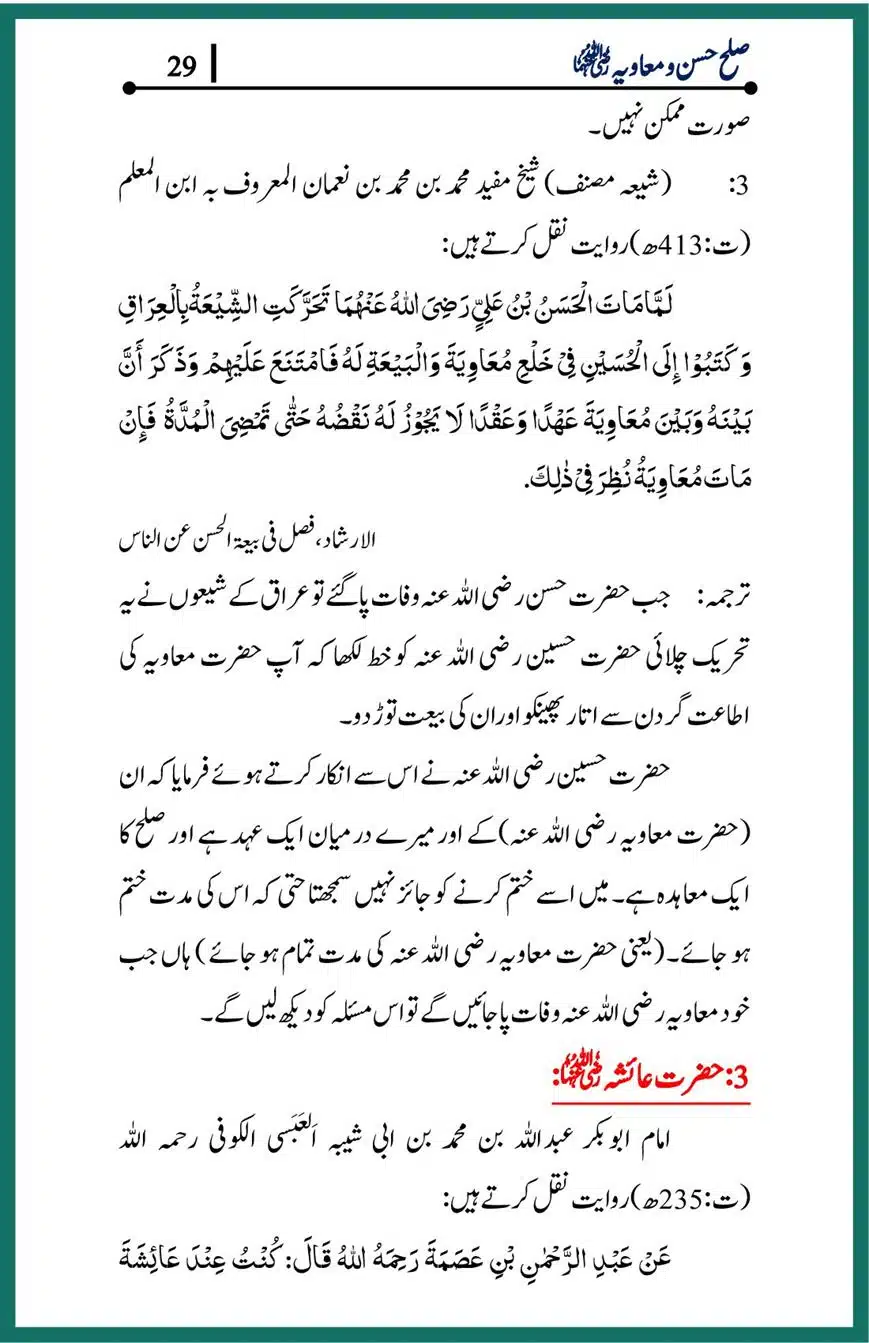 صلح حسن و معاویہ رضی اللہ عنہما 29
صورت ممکن نہیں۔
3: (شیعہ مصنف) شیخ مفید محمد بن محمد بن نعمان المعروف بہ ابن المعلم
(ت:413ھ)روایت نقل کرتے ہیں:
لَمَّا مَاتَ الْحَسَنُ بْنُ عَلِيٍّ رَضِيَ اللهُ عَنْهُمَا تَحَرَّكَتِ الشِّيْعَةُ بِالْعِرَاقِ
وَ كَتَبُوْا إِلَى الْحُسَيْنِ فِيْ خَلْعِ مُعَاوِيَةَ وَالْبَيْعَةِ لَهُ فَامْتَنَعَ عَلَيْهِمْ وَذَكَرَ أَنَّ
بَيْنَهُ وَبَيْنَ مُعَاوِيَةَ عَهْدًا وَعَقْدًا لَا يَجُوْزُ لَهُ نَقْضُهُ حَتّٰى تَمْضِيَ الْمُدَّةُ فَإِنْ
مَاتَ مُعَاوِيَةُ نُظِرَ فِيْ ذٰلِكَ.
الارشاد، فصل فی بیعۃ الحسن عن الناس
ترجمہ: جب حضرت حسن رضی اللہ عنہ وفات پا گئے تو عراق کے شیعوں نے یہ
تحریک چلائی حضرت حسین رضی اللہ عنہ کو خط لکھا کہ آپ حضرت معاویہ کی
اطاعت گردن سے اتار پھینکو اور ان کی بیعت توڑ دو۔
حضرت حسین رضی اللہ عنہ نے اس سے انکار کرتے ہوئے فرمایا کہ ان
(حضرت معاویہ رضی اللہ عنہ)کے اور میرے درمیان ایک عہد ہے اور صلح کا
ایک معاہدہ ہے۔ میں اسے ختم کرنے کو جائز نہیں سمجھتا حتی کہ اس کی مدت ختم
ہو جائے۔(یعنی حضرت معاویہ رضی اللہ عنہ کی مدت تمام ہو جائے) ہاں جب
خود معاویہ رضی اللہ عنہ وفات پا جائیں گے تو اس مسئلہ کو دیکھ لیں گے۔
3: حضرت عائشہ رضی اللہ عنہا:
امام ابو بکر عبداللہ بن محمد بن ابی شیبہ اَلعَبَسی الکوفی رحمہ اللہ
(ت:235ھ)روایت نقل کرتے ہیں:
عَنْ عَبْدِ الرَّحْمٰنِ بْنِ عَصَمَةَ رَحِمَهُ اللهُ قَالَ: كُنْتُ عِنْدَ عَائِشَةَ